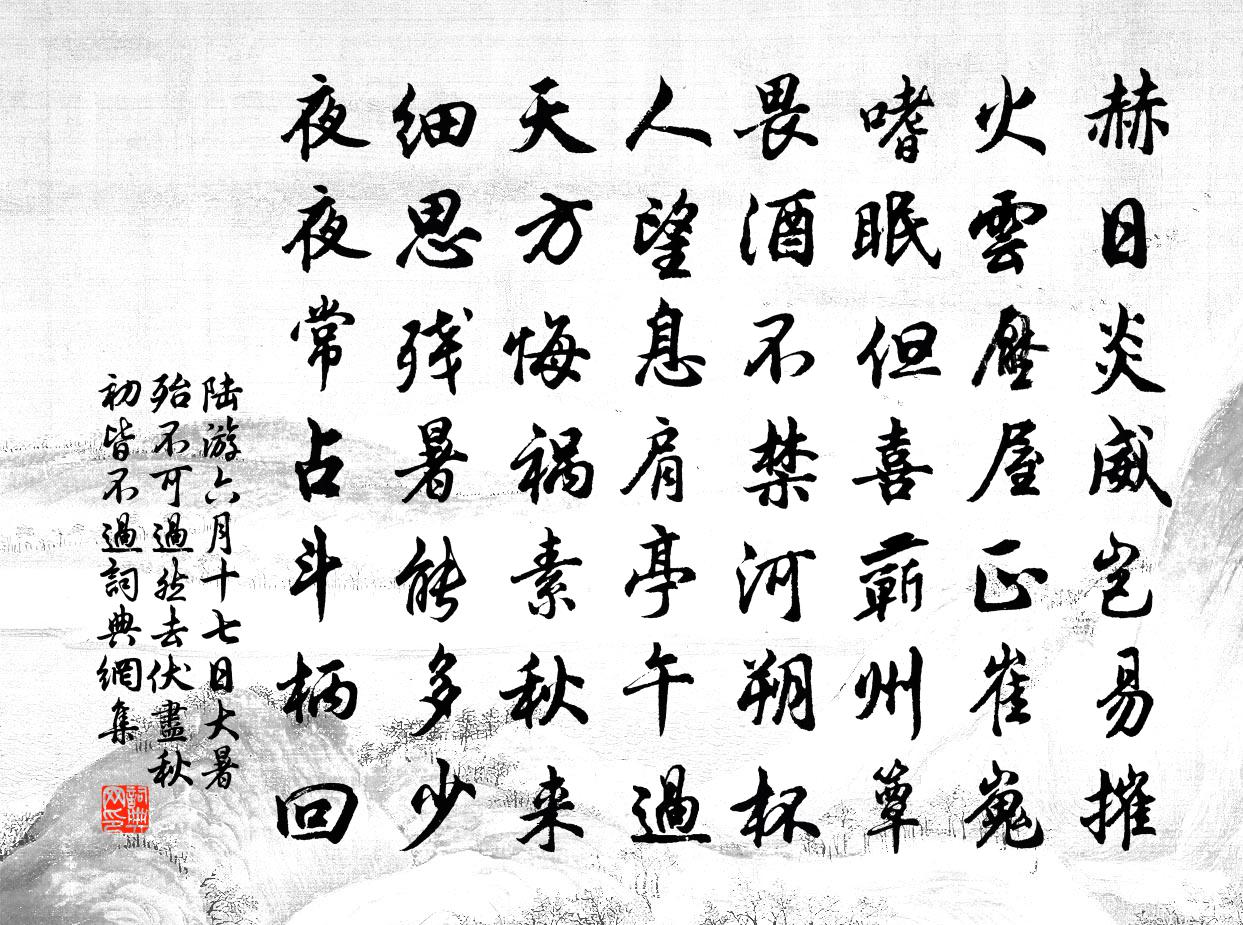 赫日炎威岂易摧
火雲壓屋正崔嵬
嗜眠但喜蘄州簟
畏酒不禁河朔杯
人望息肩亭午過
天方悔祸素秋来
细思残暑能多少
夜夜常占斗柄回
陆游六月十七日大暑
殆不可過然去伏盡秋
初皆不過詞典網集